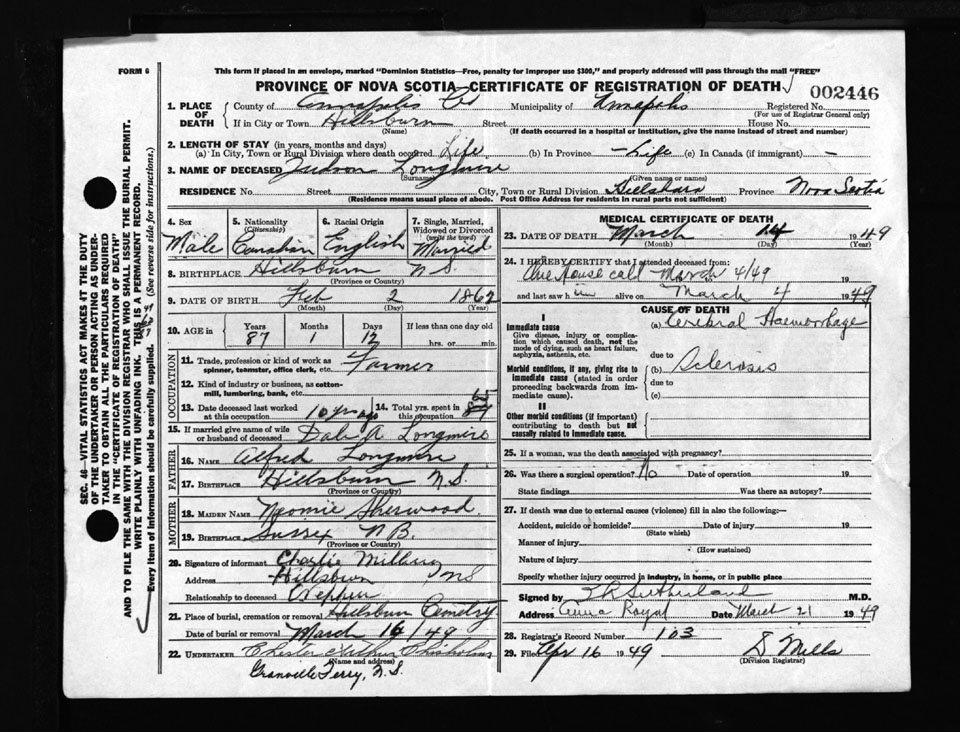 FORM 6
This form if placed in an envelope, marked "Dominion Statistics—Free, penalty for improper use $300," and properly addressed will pass through the mail "FREE"
PROVINCE OF NOVA SCOTIA—CERTIFICATE OF REGISTRATION OF DEATH
002446
1. PLACE OF DEATH
County of Annapolis Co Municipality of Annapolis Registered No.
(For use of Registrar General only)
If in City or Town Hillsburn Street House No.
(Name) (If death occurred in a hospital or institution, give the name instead of street and number)
2. LENGTH OF STAY (in years, months and days)
(a) In City, Town or Rural Division where death occurred Life (b) In Province - Life (c) In Canada (if immigrant) -
3. NAME OF DECEASED Judson Longmire
(Surname) (Given name or names)
RESIDENCE No. Street City, Town or Rural Division Province Nova Scotia
(Residence means usual place of abode. Post Office Address for residents in rural parts not sufficient)
4. Sex Male
5. Nationality (Citizenship) Canadian
6. Racial Origin English
7. Single, Married, Widowed or Divorced (write the word) Married
8. BIRTHPLACE Hillsburn N.S.
(Province or Country)
9. DATE OF BIRTH Feb 2 1862
(Month) (Day) (Year)
10. AGE in Years Months Days If less than one day old
87 1 12 hrs. or min.
OCCUPATION
11. Trade, profession or kind of work as spinner, teamster, office clerk, etc. Farmer
12. Kind of industry or business, as cotton-mill, lumbering, bank, etc.
13. Date deceased last worked at this occupation 10 yrs ago
14. Total yrs. spent in this occupation
15. If married give name of wife or husband of deceased A Longmire
FATHER
16. NAME Alfred Longmire
17. BIRTHPLACE Hillsburn N.S.
(Province or Country)
MOTHER
18. MAIDEN NAME Neomie Sherwood
19. BIRTHPLACE Sussex N.B.
(Province or Country)
20. Signature of informant Charlie Millbury
Address Hillsburn NS
Relationship to deceased Nephew
21. Place of burial, cremation or removal Hillsburn Cemetry
Date of burial or removal March 16/49
22. UNDERTAKER Chester Arthur Chisholm
(Name and address)
Granville Ferry, N.S.
MEDICAL CERTIFICATE OF DEATH
23. DATE OF DEATH March 14 1949
(Month) (Day) (Year)
24. I HEREBY CERTIFY that I attended deceased from:
One House call March 4/49 19
and last saw him alive on March 4 1949
CAUSE OF DEATH
I
Immediate cause
Give disease, injury or complication which caused death, not the mode of dying, such as heart failure, asphyxia, asthenia, etc.
(a) Cerebral Haemorrhage
due to
Morbid conditions, if any, giving rise to immediate cause (stated in order proceeding backwards from immediate cause).
(b) Sclerosis
due to
(c)
II
Other morbid conditions (if important) contributing to death but not causally related to immediate cause.
25. If a woman, was the death associated with pregnancy?
26. Was there a surgical operation? No Date of operation 19
State findings Was there an autopsy?
27. If death was due to external causes (violence) fill in also the following:—
Accident, suicide or homicide? Date of injury 19
(State which)
Manner of injury
(How sustained)
Nature of injury
Specify whether injury occurred in industry, in home, or in public place
Signed by Sutherland M.D.
Address Anna Royal Date March 21 1949
28. Registrar's Record Number 103
29. Filed Apr 16 1949 S Mills
(Division Registrar)
SEC. 46—VITAL STATISTICS ACT MAKES IT THE DUTY
OF THE UNDERTAKER OR PERSON ACTING AS UNDER-
TAKER TO OBTAIN ALL THE PARTICULARS REQUIRED
IN THE "CERTIFICATE OF REGISTRATION OF DEATH"
AND TO FILE THE SAME WITH THE DIVISION REGISTRAR WHO SHALL ISSUE THE BURIAL PERMIT.
WRITE PLAINLY WITH UNFADING INK. THIS IS A PERMANENT RECORD.
Every item of information should be carefully supplied. (See reverse side for instructions.)